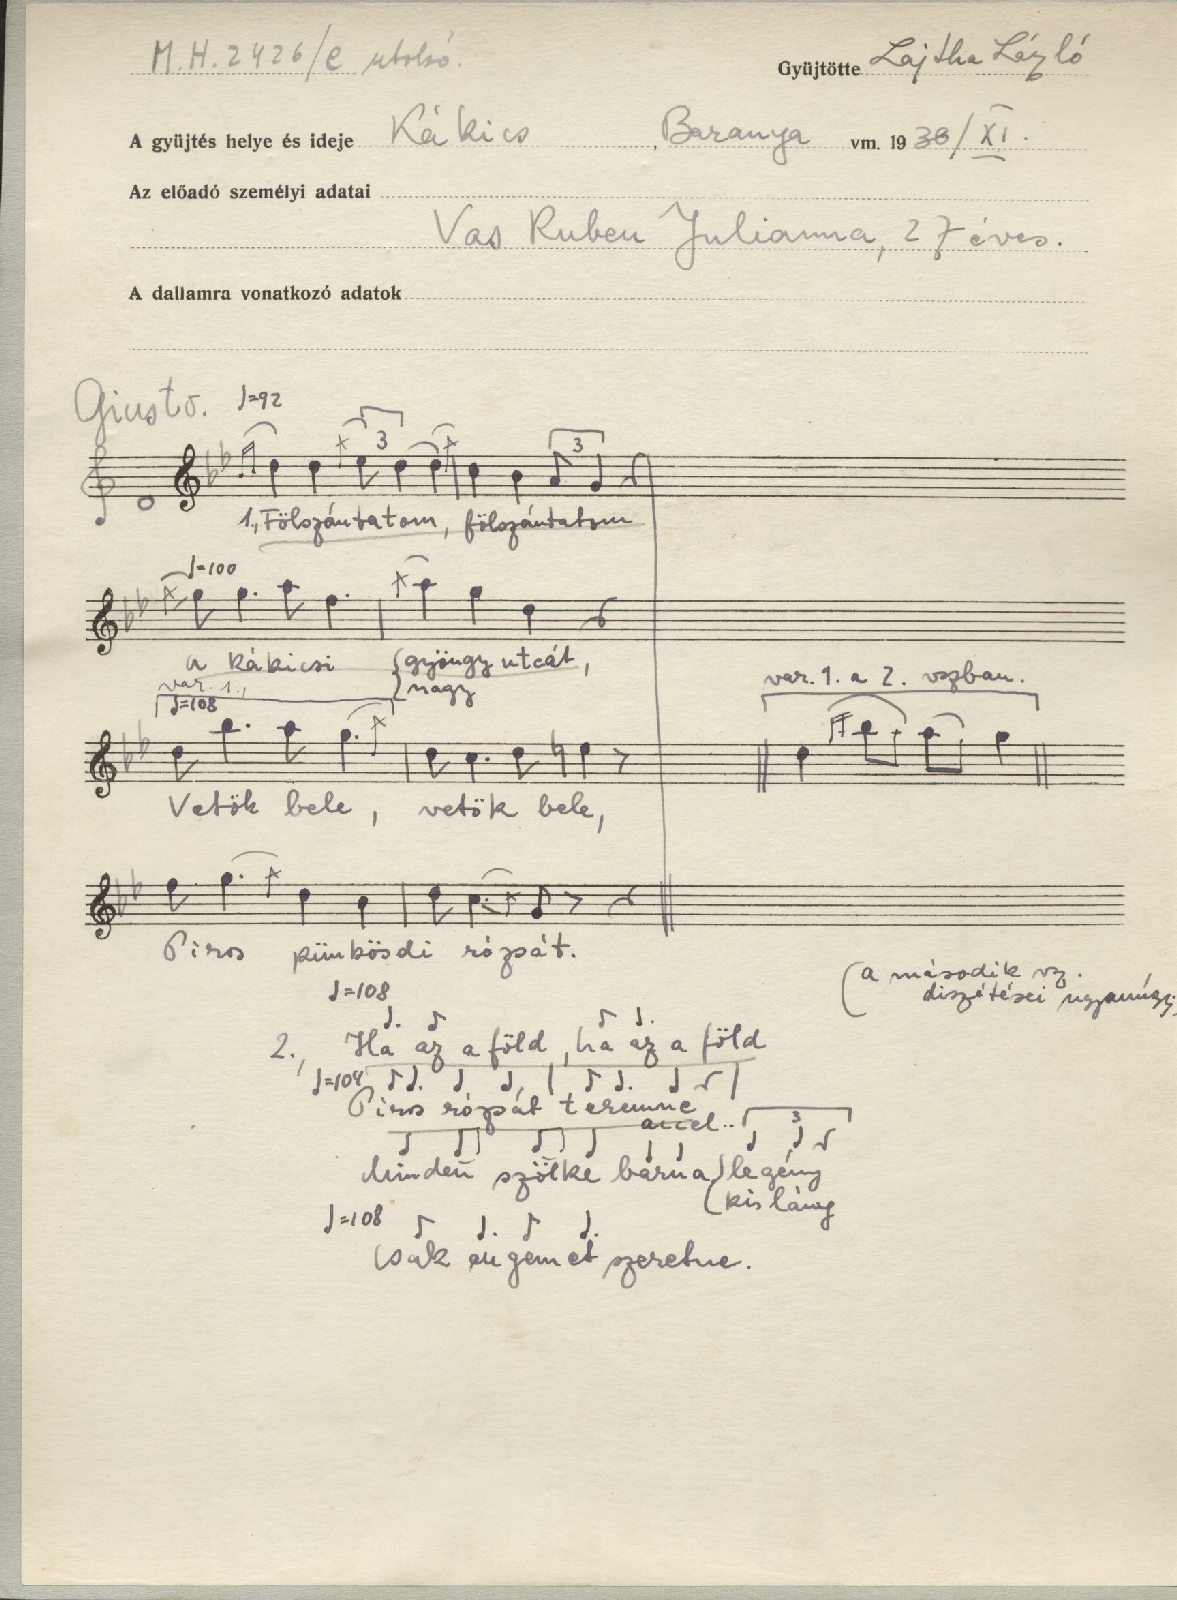 M.H.2426/e utolsó.
Gyüjtötte Lajtha László
A gyüjtés helye és ideje Kákics, Baranya vm. 1938/XI.
Az előadó személyi adatai
Vas Ruben Julianna, 27 éves.
A dallamra vonatkozó adatok
Giusto. ♩=92
3 3
1., Fölszántatom, fölszántatom
♩=100
a kákicsi {gyöngy utcát,
{nagy
var. 1., var. 1. a 2. vszban.
♩=108
Vetök bele, vetök bele,
Piros pünkösdi rózsát.
(a második vsz.
diszítései ugyanúgy)
♩=108
2., Ha az a föld, ha az a föld
♩=104
Piros rózsát teremne
accel.. 3
Minden szöke barna legény
kislány
♩=108
Csak engemet szeretne.